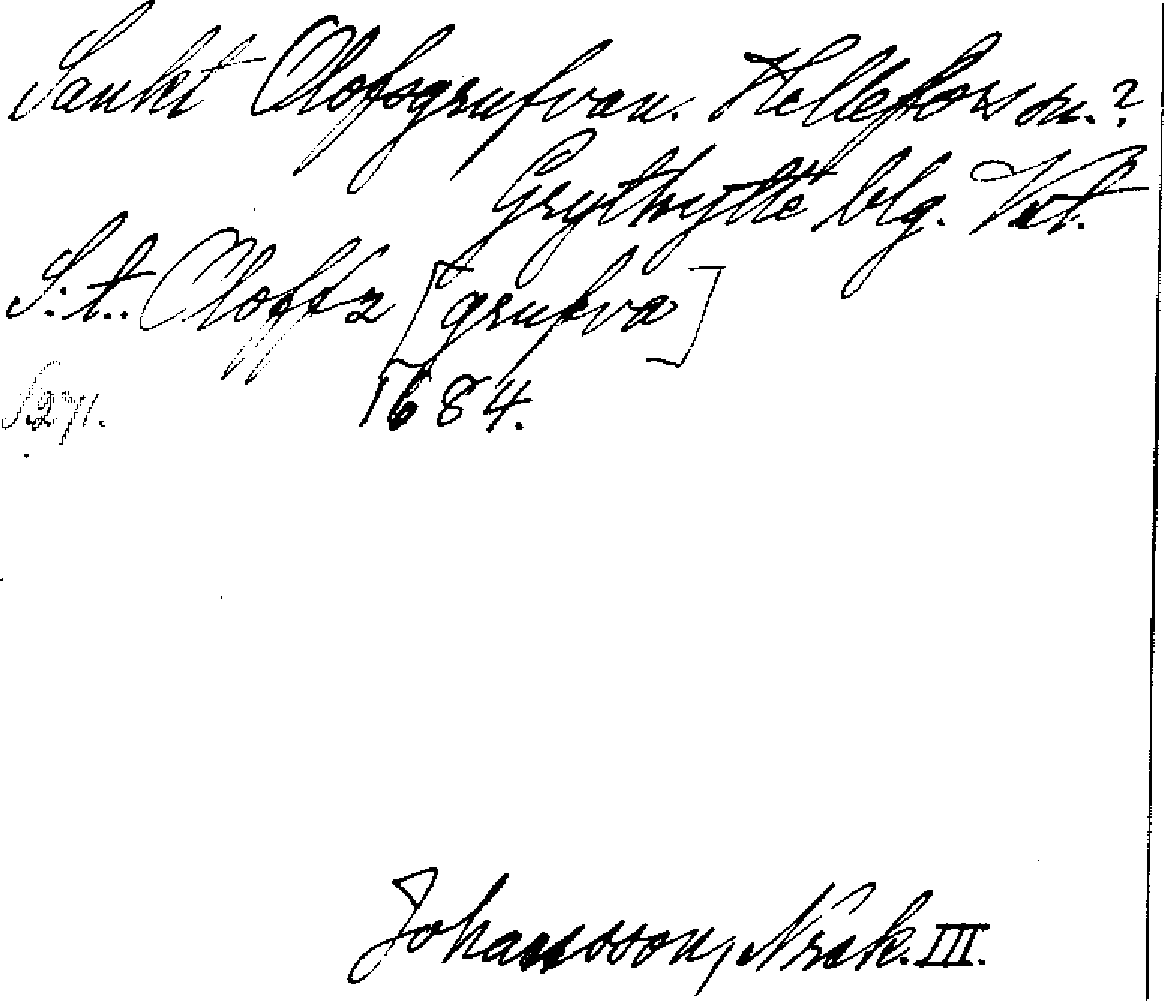 Sankt Olofsgrufvan. Hellefors sn.?
Grythytte blg. Vstm.
S:t. Oloffz [grufva]
S. 271. 1684.
Johansson, Noraskog III.